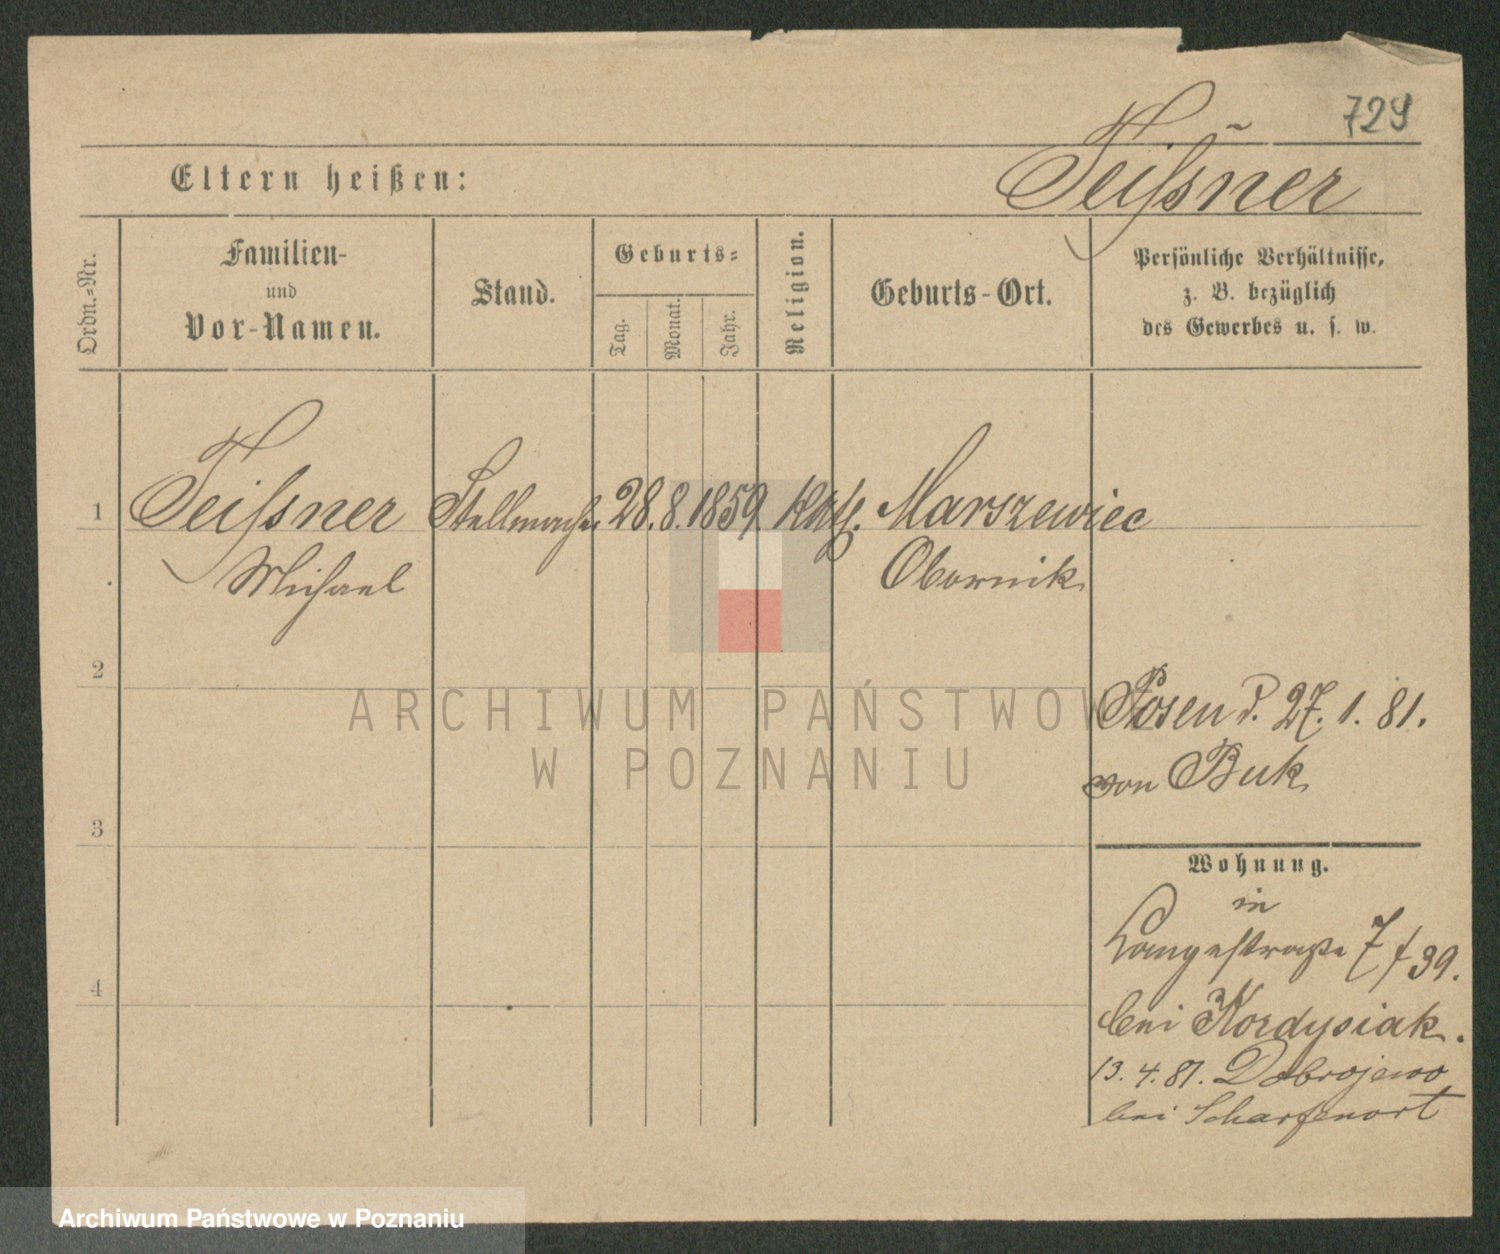 729
Teißner
Eltern heißen:
Ordn.-Nr.
Familien-
und
Vor-Namen.
Stand.
Geburts-
Tag.
Monat.
Jahr.
Religion.
Geburts-Ort.
Persönliche Verhältnisse,
z. B. bezüglich
des Gewerbes u. s. w.
1 Teißner Stellmacher 28. 8. 1859. kath. Marszewiec
Michael Obornik
2
Posen d. 27. 1. 81.
von Buk
3
Wohnung.
in
Langestraße 7/39.
4
bei Kordysiak.
13. 4. 81. Dobrojewo
bei Scharfenort
ARCHIWUM PAŃSTWOWE
W POZNANIU
Archiwum Państwowe w Poznaniu